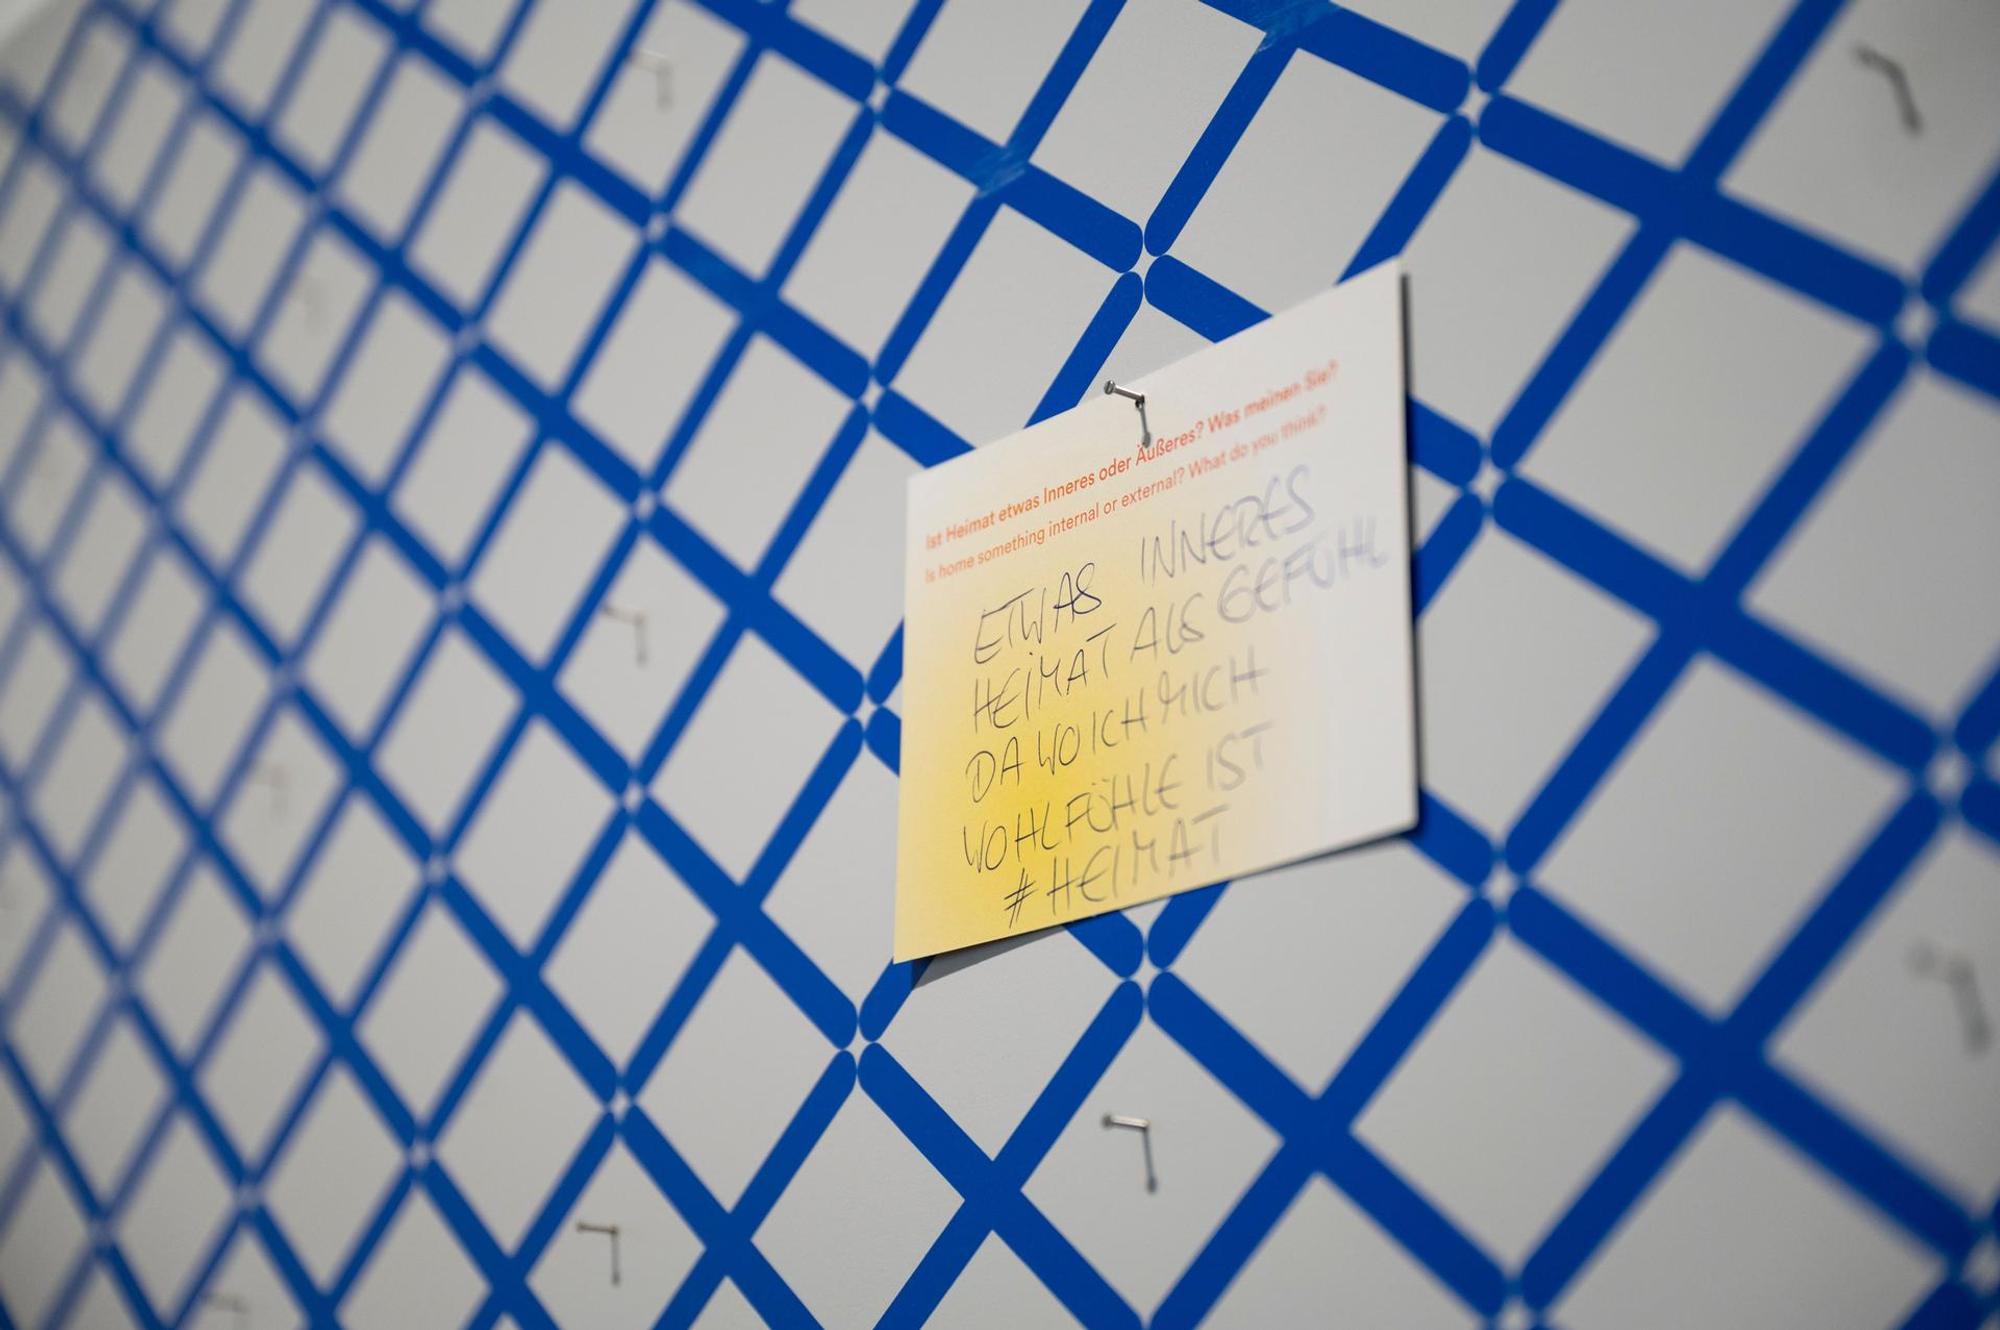 Ist Heimat etwas Inneres oder Äußeres? Was meinen Sie?
Is home something internal or external? What do you think?
ETWAS INNERES
HEIMAT ALS GEFÜHL
DA WO ICH MICH
WOHLFÜHLE IST
#HEIMAT